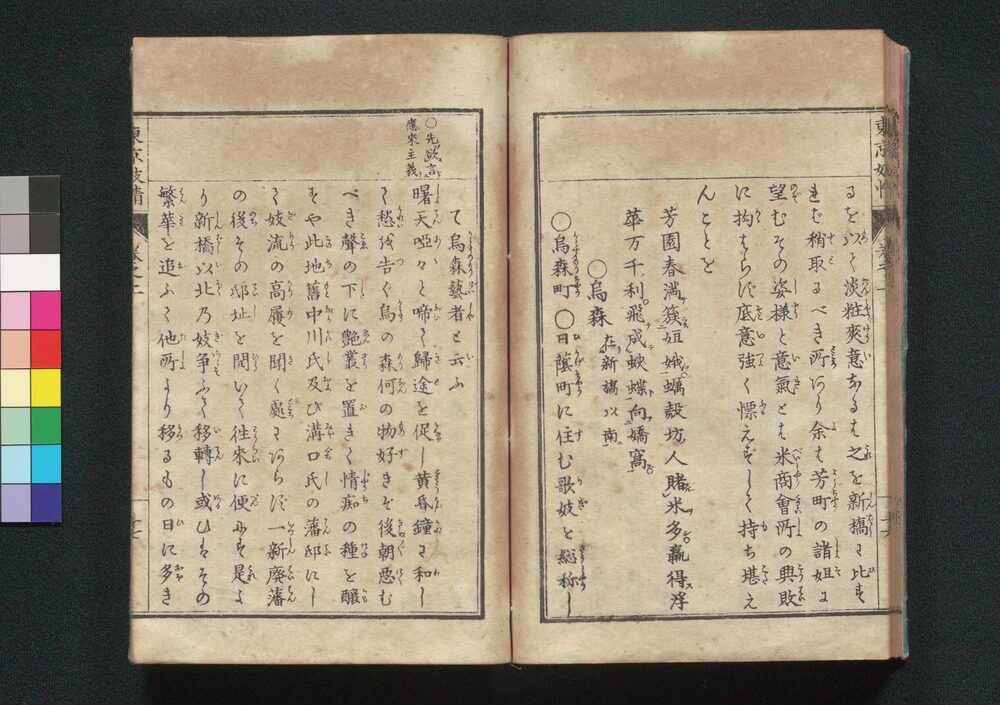 東京妓情
るを以て淡粧爽意なるは之を新橋に比す
れば稍取るべき所あり余は芳町の諸姐に
望むその姿様と意氣とは米商會所の興敗
に拘はらず底意強く慓えずして持ち堪え
んことを
芳園春満簇姮娥蠣殻坊人賭米多贏得浮
華万千利飛成蛺蝶向嬌窩
○烏森 在新橋以南
○烏森町○日蔭町に住む歌妓を総称し
○先欲言
應來主義
て烏森藝者と云ふ
曙天啞々と啼く歸途を促し黄昏鐘に和し
て愁を告ぐ烏の森何の物好きぞ後朝惡む
べき聲の下に艶叢を置きて情痴の種を醸
すや此地舊中川氏及び溝口氏の藩邸にし
て妓流の高屐を聞く處にあらず一新廢藩
の後その邸址を開いて徃來に便にす是よ
り新橋以北の妓争ふて移轉し或ひはその
繁華を追ふて他所より移るもの日に多き
東京妓情 巻之二
十七